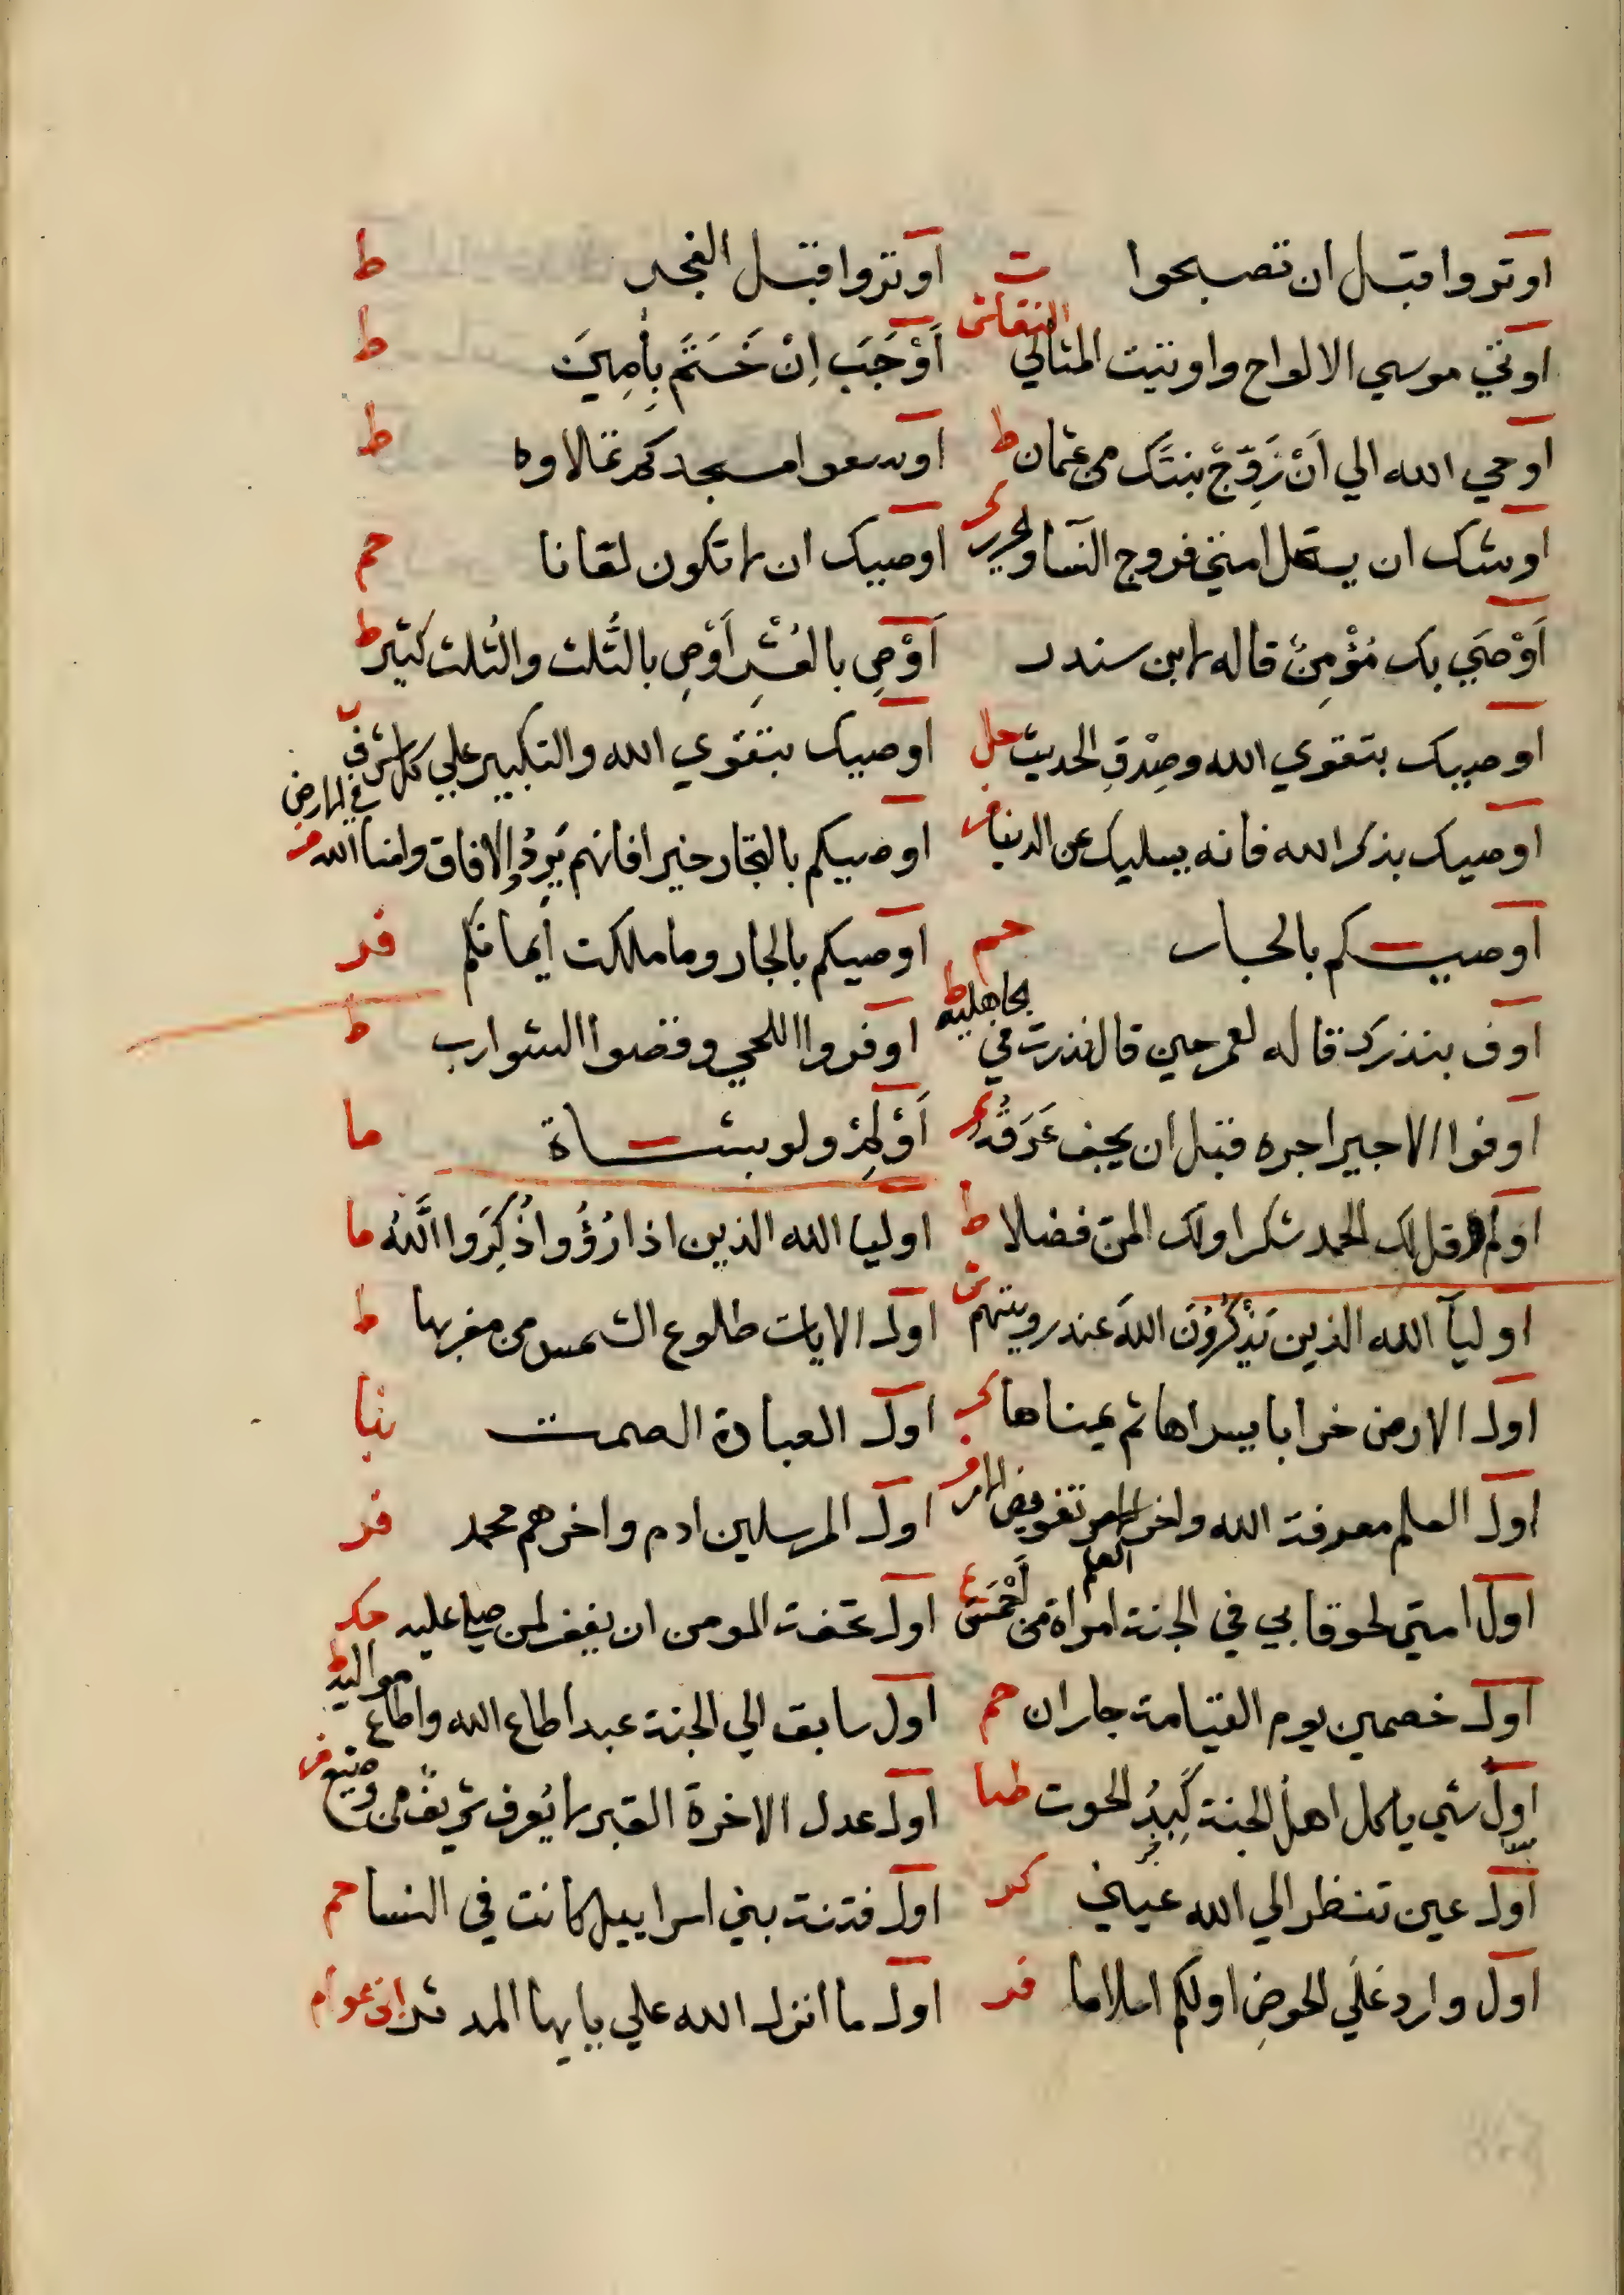 اوتروا قبل ان تصبحوا ت اوتروا قبل الفجر ط
اوتي موسي الالواح واوتيت المثاني النقاش اَوْجَبَ اِنْ خَتَمَ بِأمِينَ ط
اوحي الله الي اَنْ زَوِّجْ بنتَك من عثمان ط اوسعوا مسجدكم تملاوه ط
اوشك ان يستحل امتي فروج النسا والحرير كر اوصيك ان لا تكون لعانا حم
اَوْصَي بك مُؤْمِنٌ قاله لابن سندر اَوْصِ بالعُشْرِ اَوْصِ بالثُّلث والثُلث كثير ط
اوصيك بتقوي الله وصِدْقِ الحديث حل اوصيك بتقوي الله والتكبير علي كل شرف ب
اوصيك بذكر الله فانه يسليك عن الدنيا اوصيكم بالتجار خيرا فانهم بُرُدُ الافاق وامنا الله في الارض فر
اوصيكم بالجار حم اوصيكم بالجار وما ملكت أيمانكم فر
اوف بنذرك قاله لعمر حين قال نذرت في الجاهلية ط اوفروا اللحي وقصوا الشوارب ط
اوفوا الاجير اجره قبل ان يجف عَرَقُه كر اَوْلِمْ ولو بشاة ما
قل لك الحمد شكرا ولك المن فضلا ط اوليا الله الذين اذا رُؤُوا ذُكِرَوا اللَّهُ ما
اوليآ الله الذين يَذْكُرُوْنَ اللهَ عند رويتهم ش اول الايات طلوع الشمس من مغربها ط
اول الارض خرابا يسراها ثم يمناها كر اول العبادة الصمت نبا
اول العلم معرفة الله واخر العلم تفويض الامر فر اول المرسلين ادم واخرهم محمد فر
اول امتي لحوقا بي في الجنة امراة من اَحْمَسَ ع اول تحفة المومن ان يغفر لمن صلي عليه حك
اول خصمين يوم القيامة جاران حم اول سابق الي الجنة عبد اطاع الله واطاع مواليه ط
اول شي ياكل اهل الجنة كَبِدُ الحوت طيا اول عدل الاخرة القبر لا يُعرف شريفٌ من وضيع فر
اول عين تنظر الي الله عيني كر اول فتنة بني اسراييل كانت في النسا حم
اول وارد عَلَي الحوضِ اولكم اسلاما فر اول ما انزل الله علي يايها المدثر